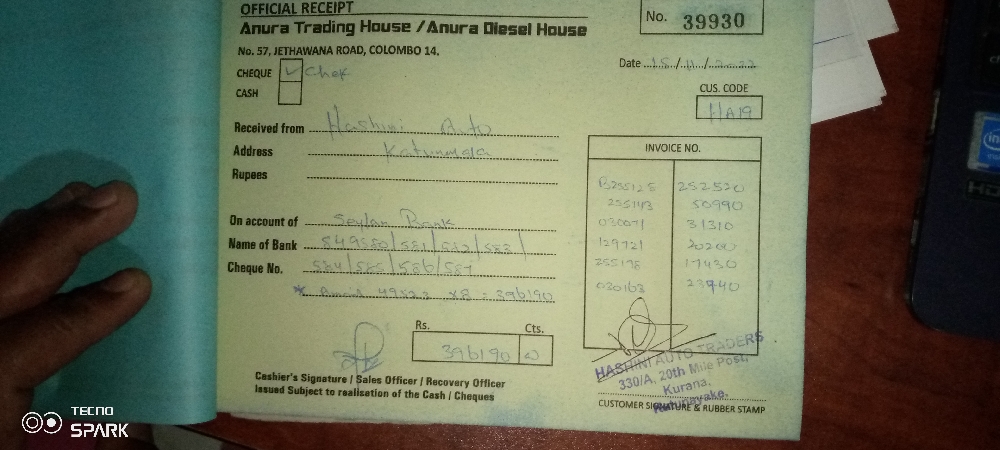 OFFICIAL RECEIPT
Anura Trading House / Anura Diesel House
No. 57, JETHAWANA ROAD, COLOMBO 14.
No. 39930
Date 15/11/2022
CHEQUE ✓ Chek
CASH
CUS. CODE
HA19
Received from Hashini Auto
Address
Rupees
On account of Seylan Bank
Name of Bank 549580/581/582/583/
Cheque No. 584/585/586/587
x8 = 396190
INVOICE NO.
255143 50990
030071 31310
129721 20200
255198 17430
030163 23740
Rs. Cts.
396190
Cashier's Signature / Sales Officer / Recovery Officer
Issued Subject to realisation of the Cash / Cheques
HASHINI AUTO TRADERS
330/A, 20th Mile Post,
Kurana,
Katunayake.
CUSTOMER SIGNATURE & RUBBER STAMP
TECNO
SPARK
intel